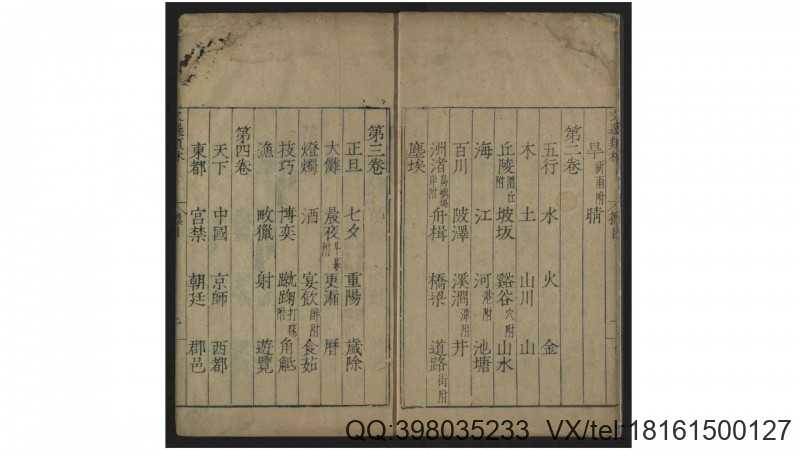 旱祈雨附 晴
第二卷
五行 水 火 金
木 土 山川 山
丘陵附 坡坂 谿谷穴附 山水
海 江 河港附 池塘
百川 陂澤 溪澗潭附 井
洲渚 舟楫 橋梁 道路街附
塵埃
第三卷
正旦 七夕 重陽 歲除
大儺 晨夜附 更漏 曆
燈燭 酒 宴飲醉附 食茹
技巧 博奕 蹴踘打毬附 角觝
漁 畋獵 射 遊覽
第四卷
天下 中國 京師 西都
東都 宮禁 朝廷 郡邑
QQ:398035233 VX/tel:18161500127